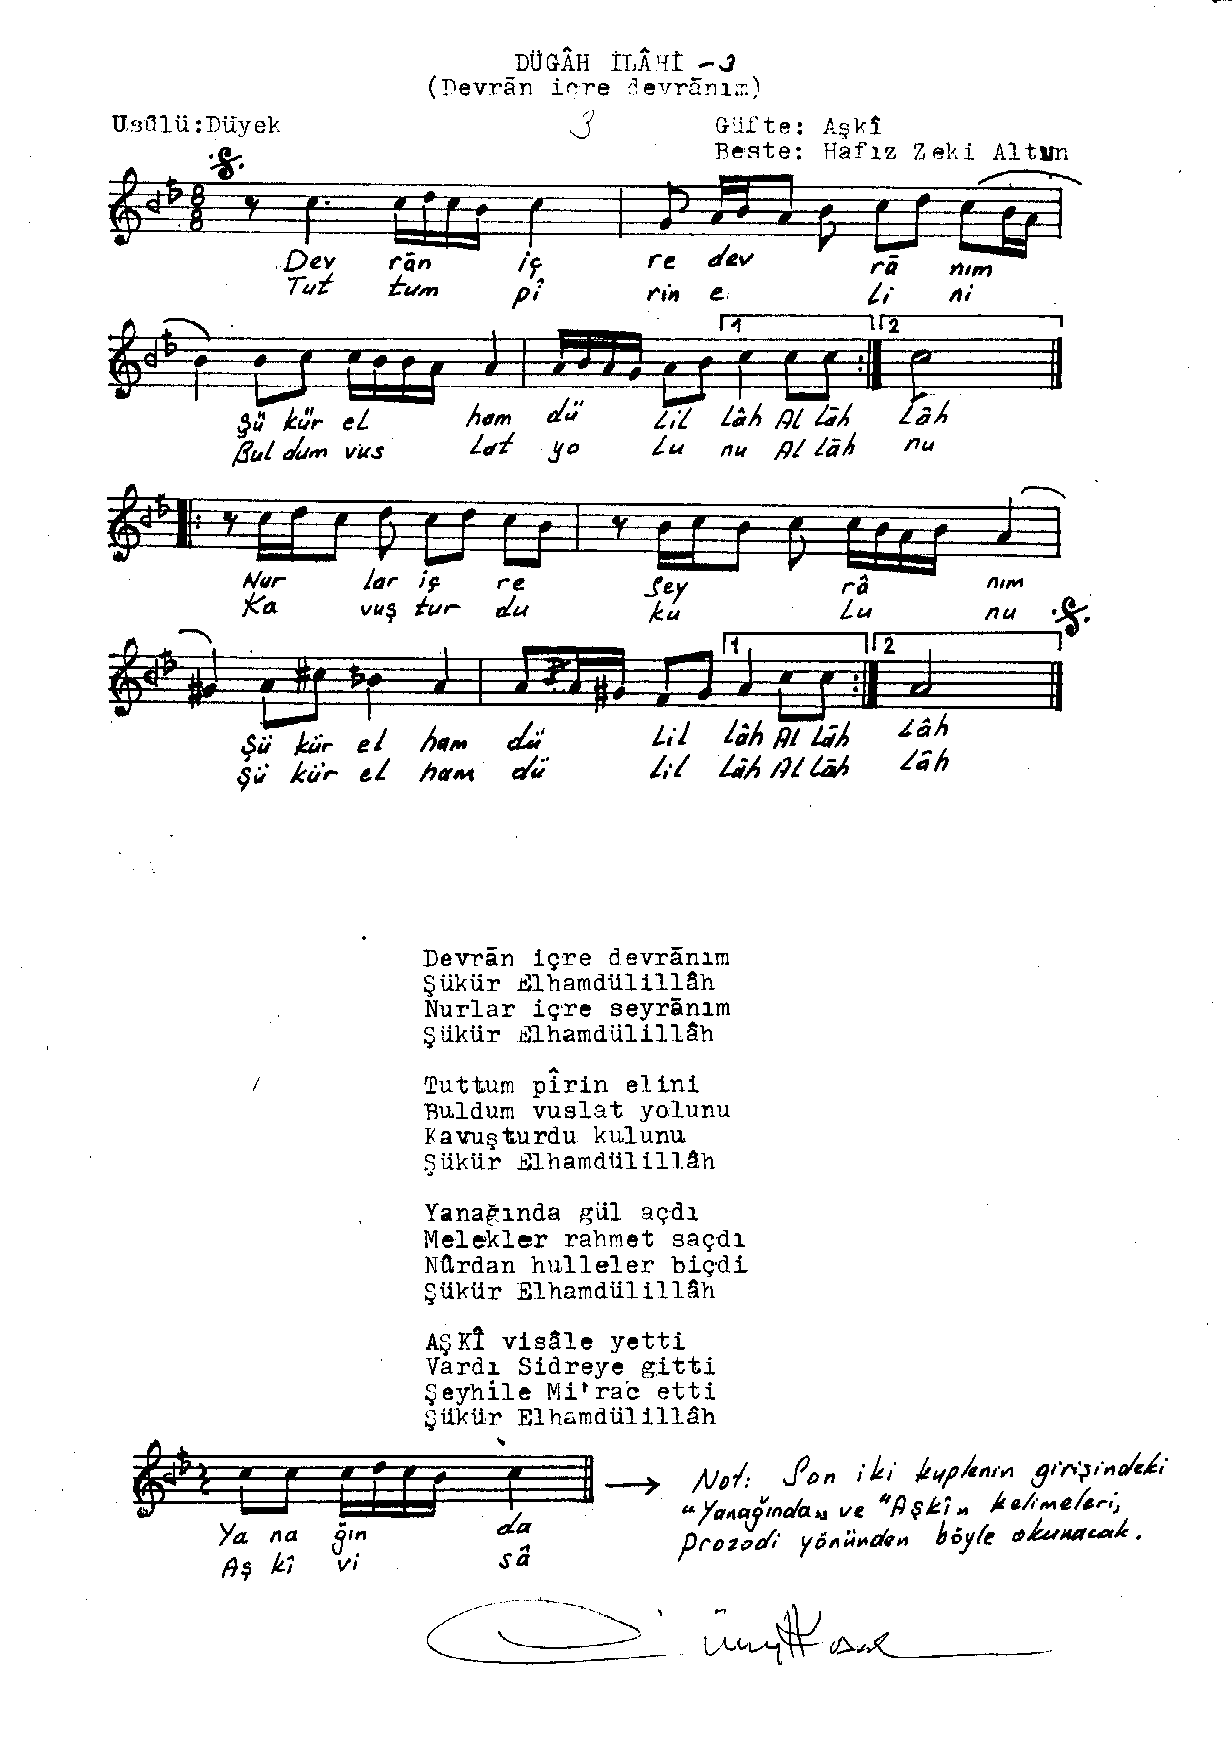 DÜGÂH İLÂHİ -3
(Devrān içre devrānım)
Usūlü:Düyek
3
Güfte: Aşkî
Beste: Hafız Zeki Altun
8
8
Dev rān iç re dev rā nım
Tut tum pî rin e li ni
1 2
Şü kür el ham dü Lil lâh Al lāh Lâh
Bul dum vus lat yo lu nu Al lāh nu
Nur lar iç re sey râ nım
Ka vuş tur du ku lu nu
1 2
Şü kür el ham dü Lil lâh Al lāh Lâh
Şü kür el ham dü lil lâh Al lāh Lâh
Devrān içre devrānım
Şükür Elhamdülillâh
Nurlar içre seyrānım
Şükür Elhamdülillâh
Tuttum pîrin elini
Buldum vuslat yolunu
Kavuşturdu kulunu
Şükür Elhamdülillâh
Yanağında gül açdı
Melekler rahmet saçdı
Nûrdan hulleler biçdi
Şükür Elhamdülillâh
AŞKÎ visâle yetti
Vardı Sidreye gitti
Şeyhile Mi'rac etti
Şükür Elhamdülillâh
Ya na ğın da
Aş kî vi sâ
Not: Son iki kuplenin girişindeki
"Yanağında„ ve "Aşkî„ kelimeleri,
prozodi yönünden böyle okunacak.